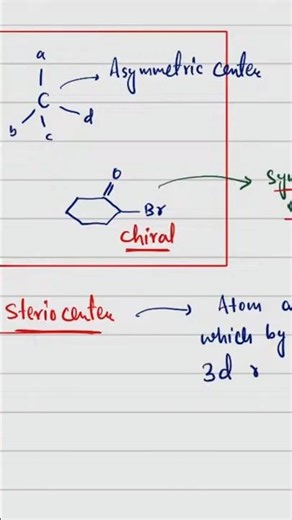 a
Asymmetric center
C
b
d
c
O
Br
Chiral
Steriocenter
Atom a
which by
3d